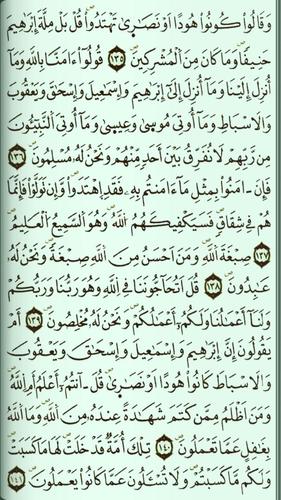 وَقَالُوا۟ كُونُوا۟ هُودًا اَوْ نَصَٰرَىٰ تَهْتَدُوا۟ قُلْ بَلْ مِلَّةَ إِبْرَٰهِيمَ
حَنِيفًا وَمَا كَانَ مِنَ اَلْمُشْرِكِينَ ١٣٥ قُولُوٓا۟ ءَامَنَّا بِاللَّهِ وَمَآ
أُنزِلَ إِلَيْنَا وَمَآ أُنزِلَ إِلَىٰٓ إِبْرَٰهِيمَ وَإِسْمَٰعِيلَ وَإِسْحَٰقَ وَيَعْقُوبَ
وَالَاسْبَاطِ وَمَآ أُوتِيَ مُوسَىٰ وَعِيسَىٰ وَمَآ أُوتِيَ اَلنَّبِيٓـُٔونَ
مِن رَّبِّهِمْ لَا نُفَرِّقُ بَيْنَ أَحَدٍ مِّنْهُمْ وَنَحْنُ لَهُۥ مُسْلِمُونَ ١٣٦
فَإِنَ اٰمَنُوا۟ بِمِثْلِ مَآ ءَامَنتُم بِهِۦ فَقَدِ اِهْتَدَوا۟ وَّإِن تَوَلَّوْا۟ فَإِنَّمَا
هُمْ فِي شِقَاقٍ فَسَيَكْفِيكَهُمُ اُللَّهُ وَهُوَ اَلسَّمِيعُ اُلْعَلِيمُ
١٣٧ صِبْغَةَ اَللَّهِ وَمَنَ اَحْسَنُ مِنَ اَللَّهِ صِبْغَةً وَنَحْنُ لَهُۥ
عَٰبِدُونَ ١٣٨ قُلَ اَتُحَآجُّونَنَا فِي اِللَّهِ وَهُوَ رَبُّنَا وَرَبُّكُمْ
وَلَنَآ أَعْمَٰلُنَا وَلَكُمُۥٓ أَعْمَٰلُكُمْ وَنَحْنُ لَهُۥ مُخْلِصُونَ ١٣٩ أَمْ
يَقُولُونَ إِنَّ إِبْرَٰهِيمَ وَإِسْمَٰعِيلَ وَإِسْحَٰقَ وَيَعْقُوبَ
وَالَاسْبَاطَ كَانُوا۟ هُودًا اَوْ نَصَٰرَىٰ قُلَ ءَآنتُمُۥٓ أَعْلَمُ أَمِ اِللَّهُ
وَمَنَ اَظْلَمُ مِمَّن كَتَمَ شَهَٰدَةً عِندَهُۥ مِنَ اَللَّهِ وَمَا اَللَّهُ
بِغَٰفِلٍ عَمَّا تَعْمَلُونَ ١٤٠ تِلْكَ أُمَّةٌ قَدْ خَلَتْ لَهَا مَا كَسَبَتْ
وَلَكُم مَّا كَسَبْتُمْ وَلَا تُسْـَٔلُونَ عَمَّا كَانُوا۟ يَعْمَلُونَ ١٤١